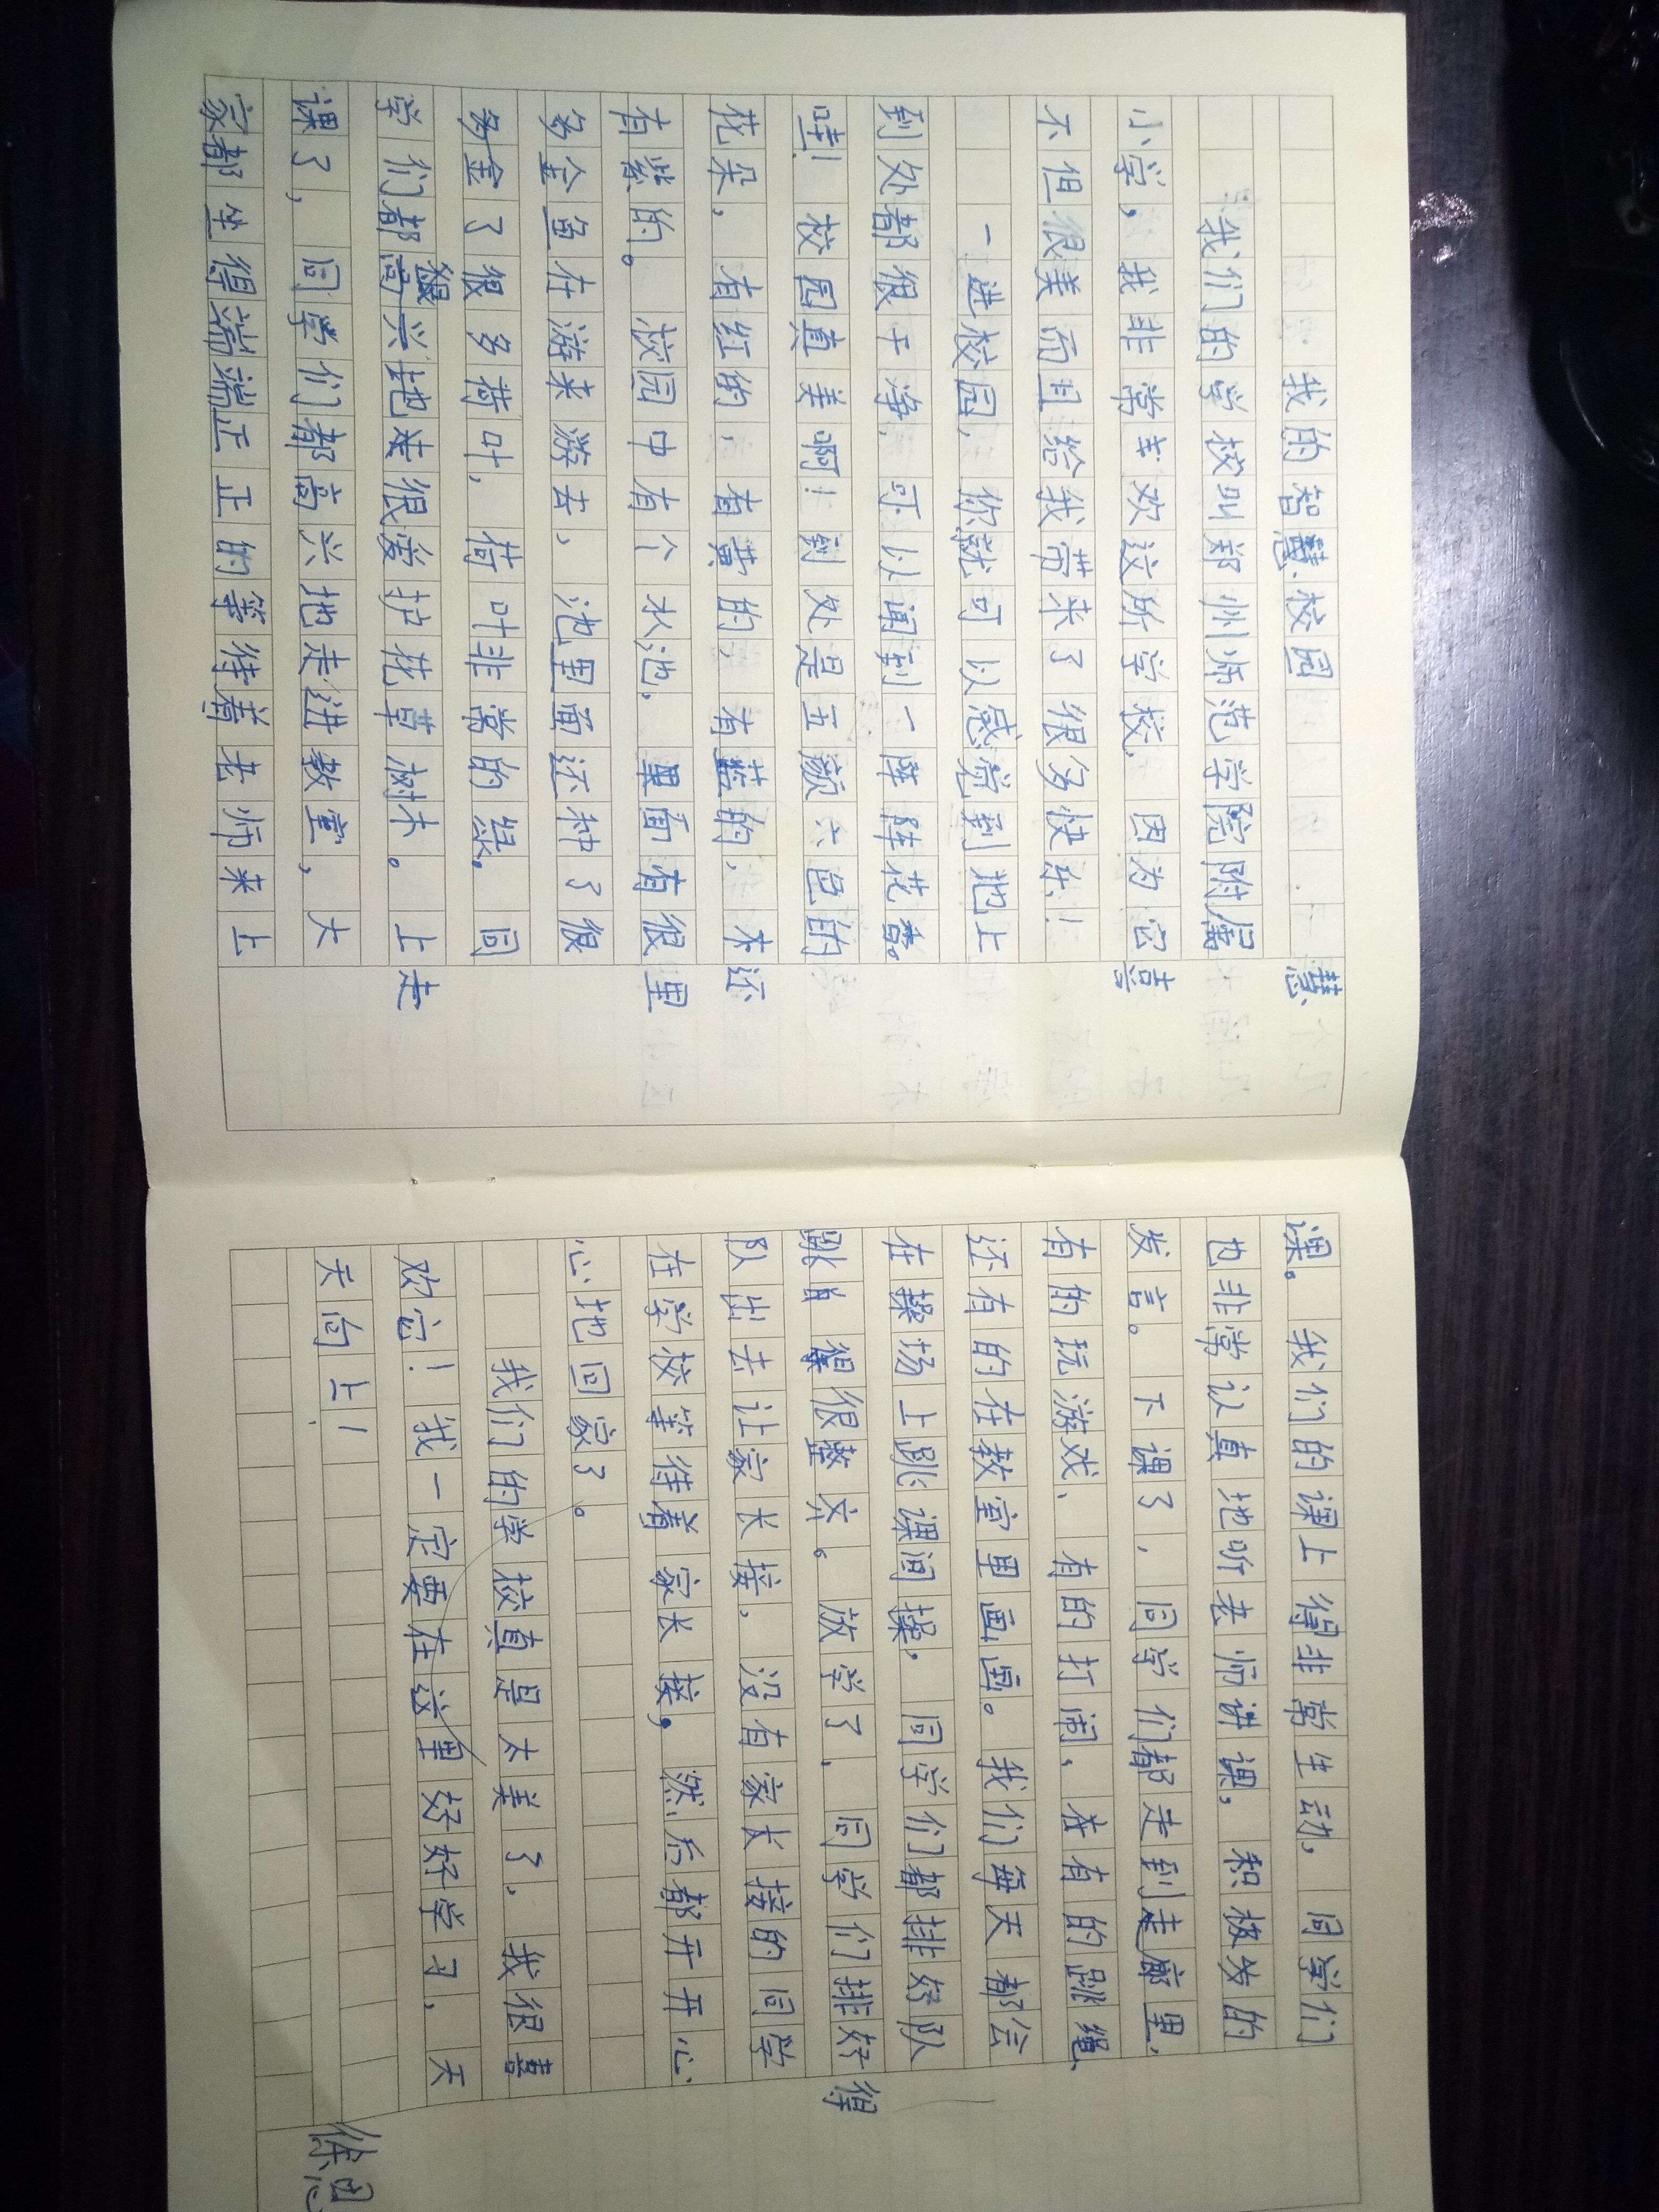 我的智慧校园 慧
我们的学校叫郑州师范学院附属
小学，我非常㐂欢这所学校，因为它 喜
不但很美而且给我带来了很多快乐！
一进校园，你就可以感觉到地上
到处都很干净，可以闻到一阵阵花香。
哇！校园真美啊！到处是五颜六色的
花朵，有红的，有黄的，有蓝的，还
有紫的。校园中有个水池，里面有很 里
多金鱼在游来游去，池里面还种了很
多金了很多荷叶，荷叶非常的绿。同
学们都高兴地走很爱护花草树木。上 走
课了，同学们都高兴地走进教室，大
家都坐得端端正正的等待着老师来上
课。我们的课上得非常生动，同学们
也非常认真地听老师讲课，积极发的
发言。下课了，同学们都走到走廊里，
有的玩游戏、有的打闹、有的跳绳
还有的在教室里画画。我们每天都会
在操场上跳课间操，同学们都排好队
跳得很整齐。放学了，同学们排好 得
队出去让家长接，没有家长接的同学
在学校等待着家长接，然后都开开心
心地回家了。
我们的学校真是太美了，我很喜
欢它！我一定要在这里好好学习，天
天向上！